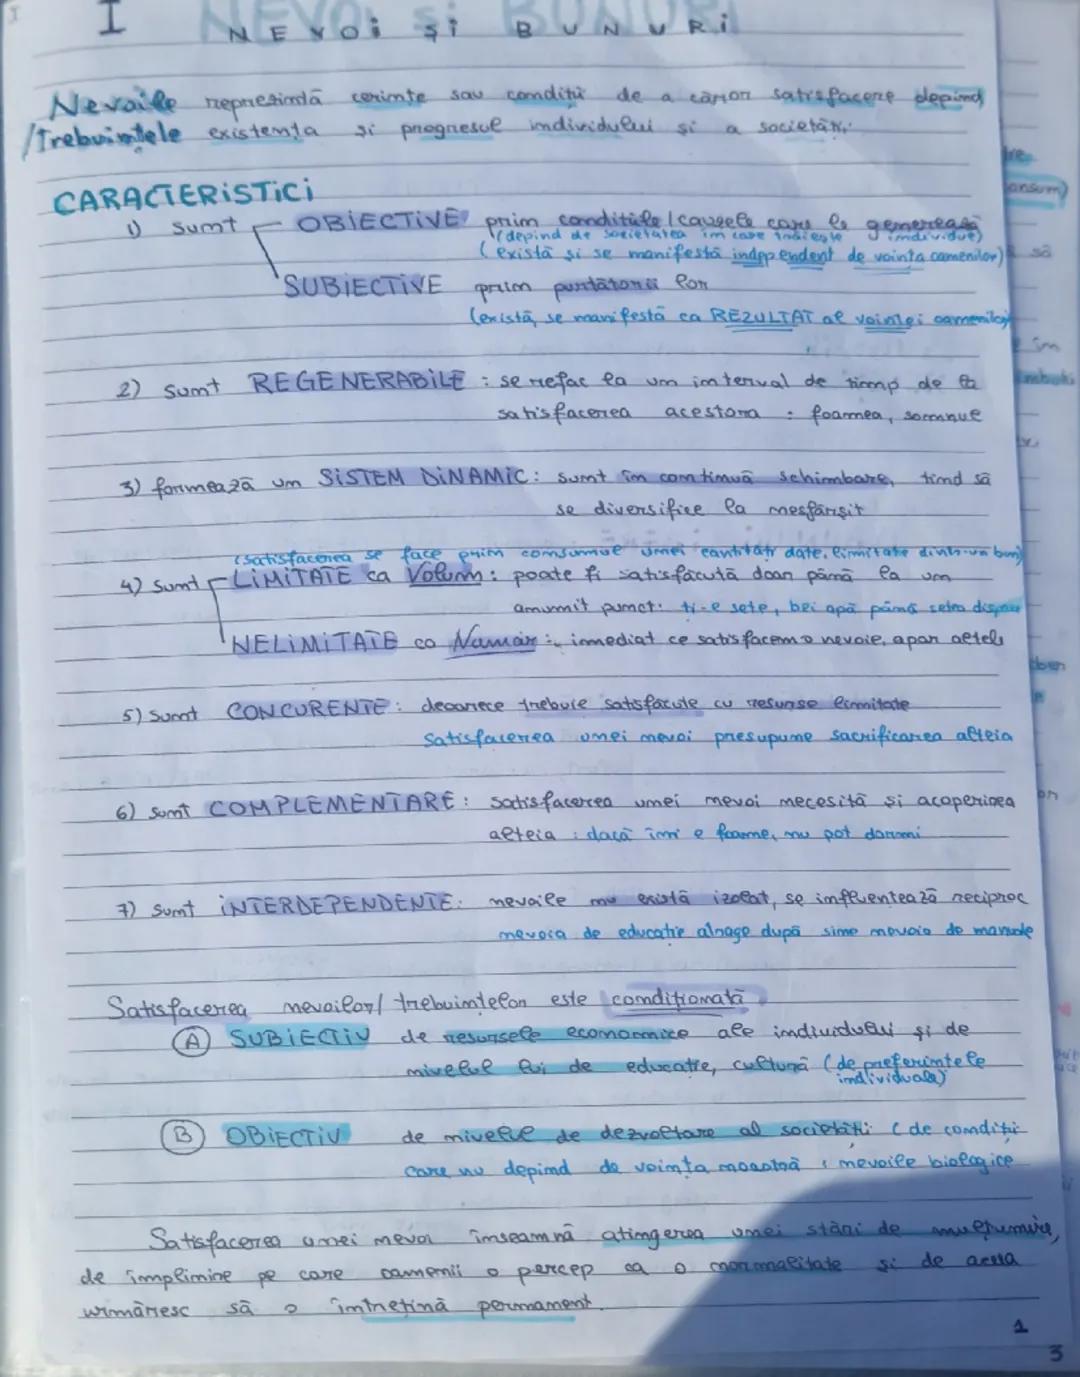 I NEVOI ŞI BUNURI
Nevoile reprezintă cerinţe sau condiţii de a căror satisfacere depind
/Trebuinţele existenţa şi progresul individului şi a societăţii.
CARACTERISTICI
1) sunt OBIECTIVE prin condiţiile/cauzele care le generează
(depind de societatea în care trăieşte individul)
(există şi se manifestă independent de voinţa oamenilor)
SUBIECTIVE prin purtătorii lor
(există, se manifestă ca REZULTAT al voinţei oamenilor)
2) sunt REGENERABILE : se refac la un interval de timp de la
satisfacerea acestora : foamea, somnul
3) formează un SISTEM DINAMIC : sunt în continuă schimbare, tind să
se diversifice la nesfârşit
(satisfacerea se face prin consumul unei cantităţi date, limitate dintr-un bun)
4) sunt LIMITATE ca Volum : poate fi satisfăcută doar până la un
anumit punct: ţi-e sete, bei apă până setea dispare
NELIMITATE ca Număr : imediat ce satisfacem o nevoie, apar altele
5) Sunt CONCURENTE : deoarece trebuie satisfăcute cu resurse limitate
Satisfacerea unei nevoi presupune sacrificarea alteia
6) sunt COMPLEMENTARE : satisfacerea unei nevoi necesită şi acoperirea
alteia : dacă îmi e foame, nu pot dormi
7) sunt INTERDEPENDENTE : nevoile nu există izolat, se influentează reciproc
nevoia de educaţie atrage după sine nevoia de manuale
Satisfacerea nevoilor/ trebuinţelor este condiţionată
A SUBIECTIV de resursele economice ale individului şi de
nivelul lui de educaţie, cultură (de preferinţele
individuale)
B OBIECTIV de nivelul de dezvoltare al societăţii (de condiţii
care nu depind de voinţa noastră : nevoile biologice
Satisfacerea unei nevoi înseamnă atingerea unei stări de mulţumire,
de împlinire pe care oamenii o percep ca o normalitate şi de aceea
urmăresc să o întreţină permanent.
1
3